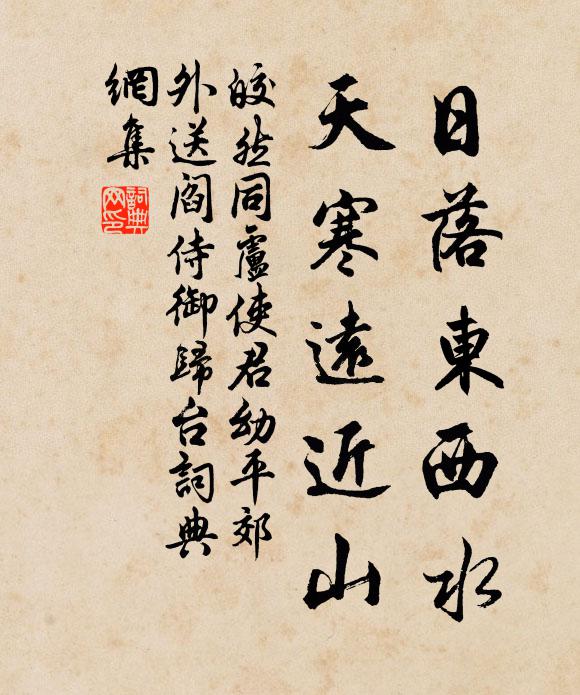 日落東西水
天寒遠近山
皎然同盧使君幼平郊
外送閻侍御歸台詞典
網集
詞典網印